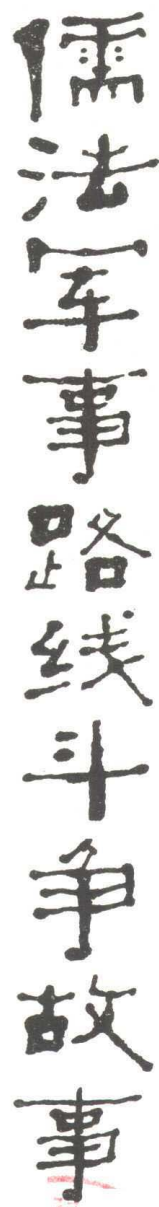 儒法军事路线斗争故事